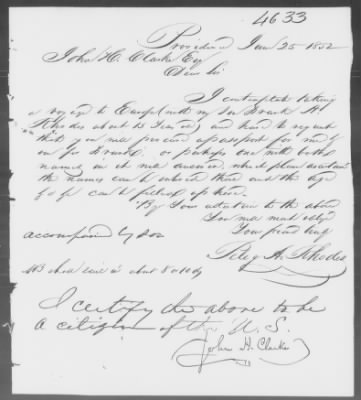 4633
Providence Jan 25 1852
John H. Clarke Esq
Dear Sir
I contemplate taking
a voyage to Europe with my Son Frank H.
Rhodes about 13 years old and have to request
that you will procure a passport for me &
my Son Frank, or passport with both
names in it will answer, which please ascertain
the names can be entered there and the age
& & can be filled up here.
By your attention to the above
You will much oblige
Your friend
Peleg A. Rhodes
accompanied by Son
NB
about
I certify the above to be
a citizen of the U. S.
John H. Clarke